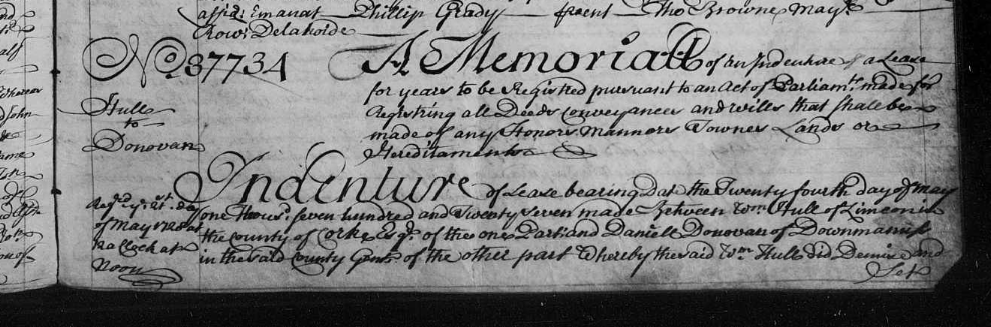 affid: Emanat Phillip Grady Thos Browne May
Rows Delahoide
No. 37734 A Memoriall of an Indenture of a Lease
for years to be Registred pursuant to an Act of Parliamt. made for
Registring all Deeds Conveyances and wills that shall be
made of any Honors Mannors Townes Lands or
Hereditaments
Hull
to
Donovan
Indenture of Lease bearing dat the Twenty fourth day of May
one Thousd. seven hundred and Twenty Seven made Between Wm. Hull of Limconin
the county of Corke Esqr. of the one Part and Daniell Donovan of Downmaniss
in the said County Gent. of the other part Whereby the said Wm. Hull did Demise and
Set
Regr. ye. 21. day
of May 1728 at
Clock at
Noon